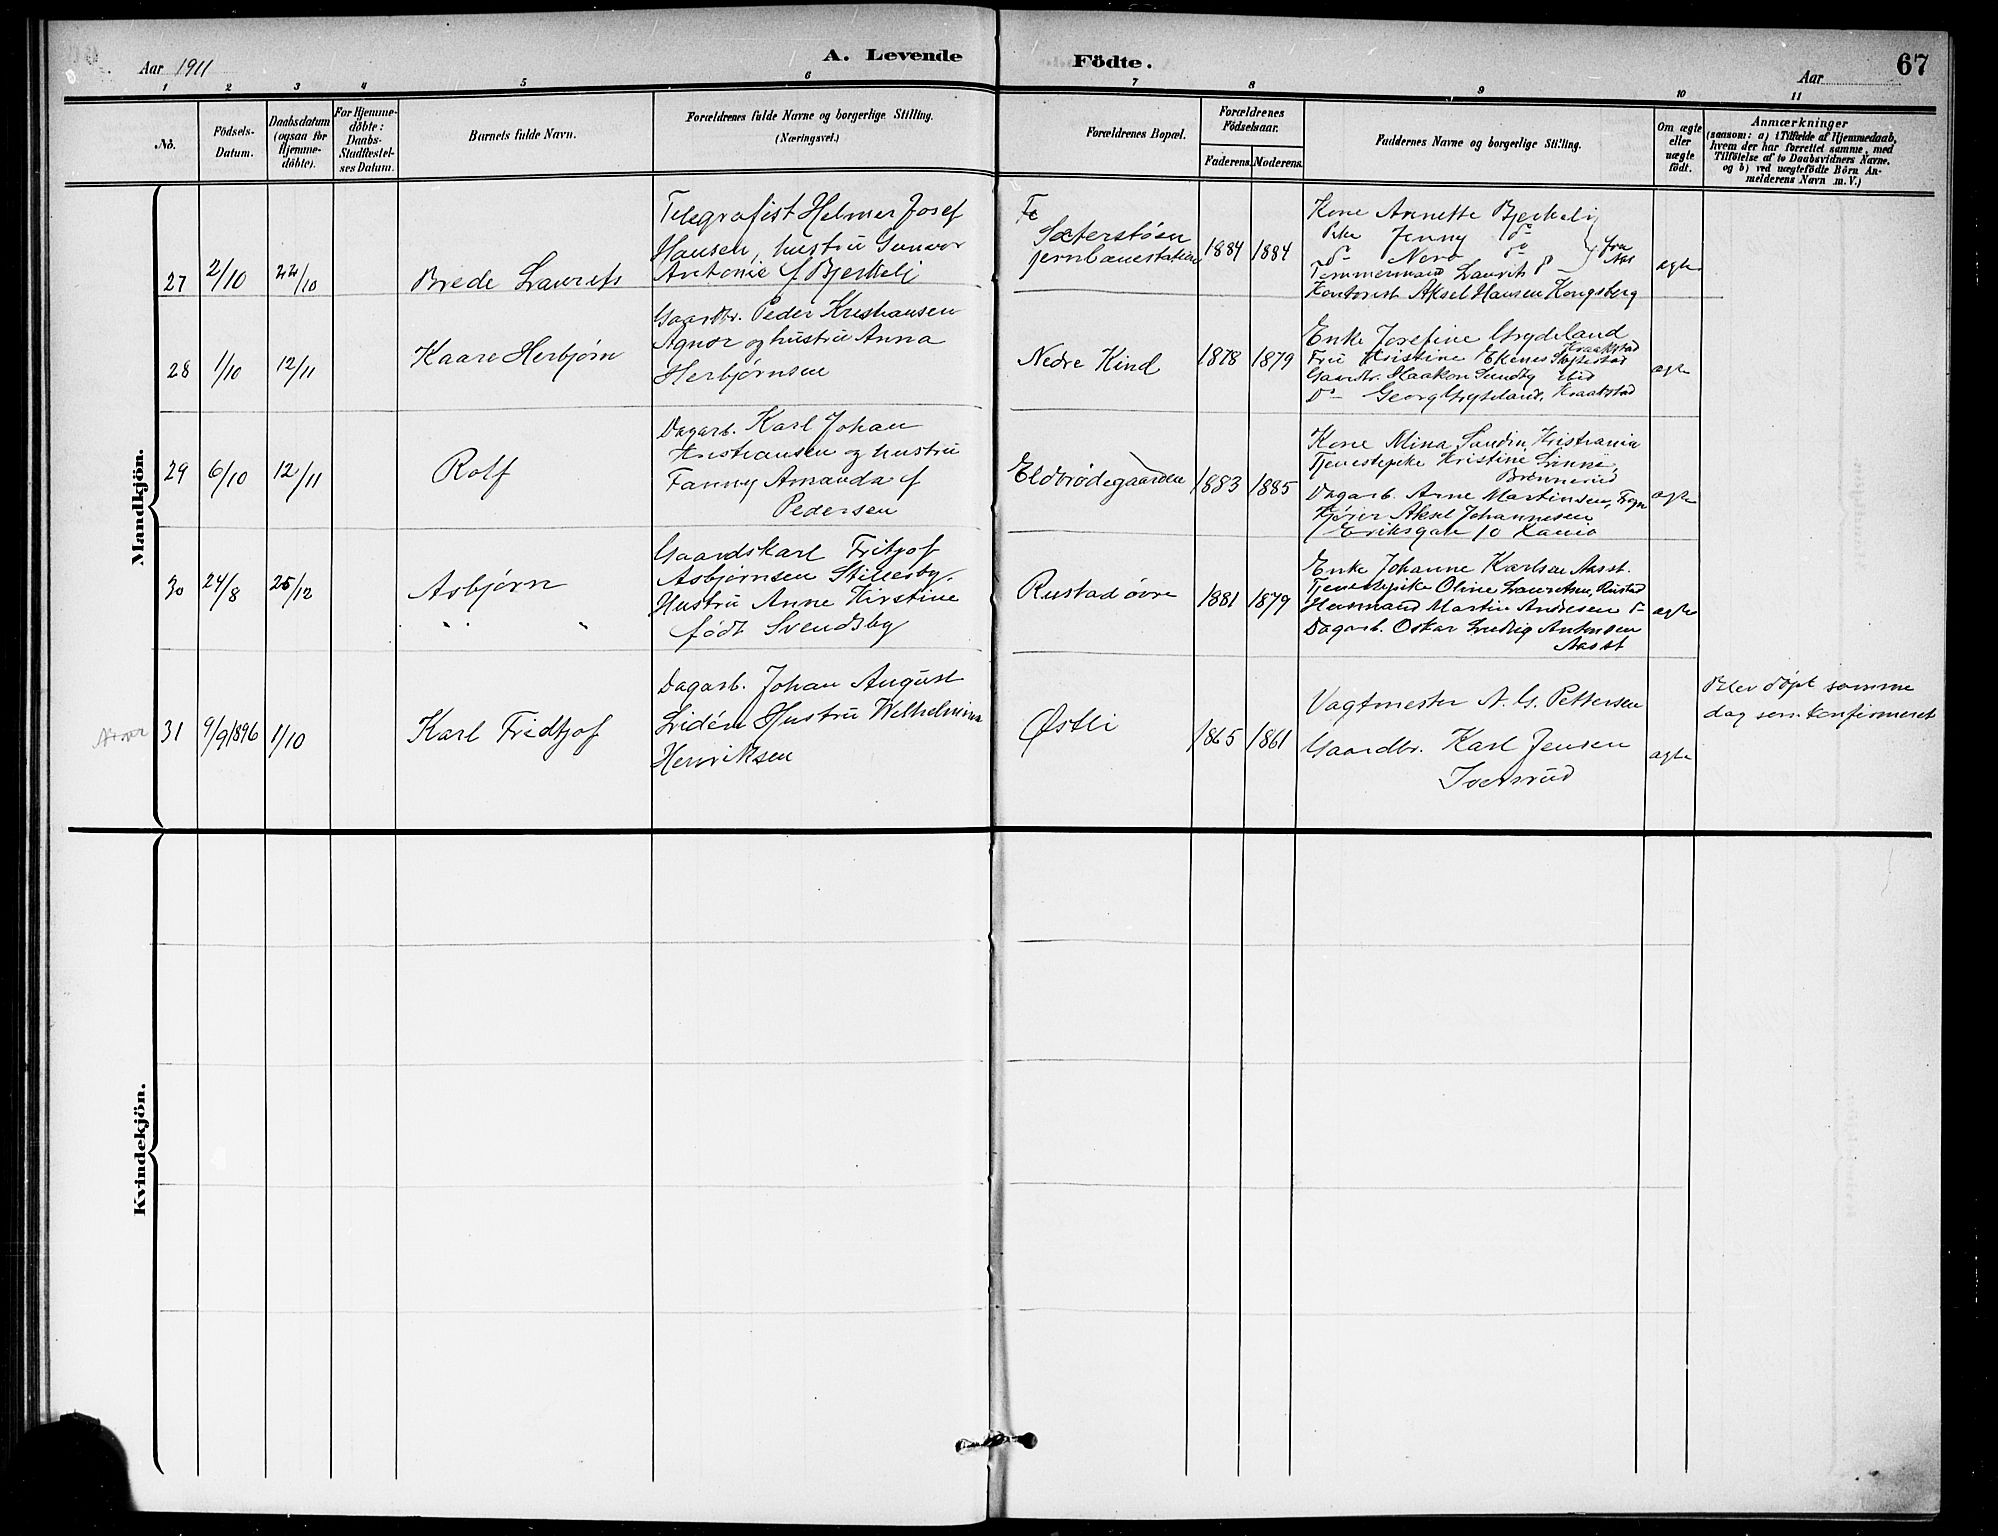 Aar 1911
A. Levende Födte.
Aar
67
1 2 3 4 5 6 7 8 9 10 11
No.
Födsels-
Datum.
Daabsdatum
(ogsaa for
Hjemme-
döbte).
For Hjemme-
döbte:
Daabs-
Stadfæstel-
ses Datum.
Barnets fulde Navn.
Forældrenes fulde Navne og borgerlige Stilling.
(Næringsvei.)
Forældrenes Bopæl.
Forældrenes
Födselsaar.
Faderens. Moderens.
Faddernes Navne og borgerlige Stilling.
Om ægte
eller
uægte
födt.
Anmærkninger
(saasom: a) i Tilfælde af Hjemmedaab,
hvem der har forrettet samme, med
Tilföielse af to Daabsvidners Navne.
og b) ved uægtefödte Börn An-
melderens Navn m. V.)
Mandkjön.
27
2/10
22/10
Brede Laurits
Telegrafist Helmer Josef
Hansen, hustru Gunvor
Antonie f Bjerkeli
Sæterstøen
jernbanestation
1884
1884
Kone Annette Bjerkeli
Pike Jenny do
do Nora do
fra Aas
Tømmermand Laurits do
Kontorist Aksel Hansen Kongsberg
ægte
28
1/10
12/11
Kaare Herbjørn
Gaardbr. Peder Kristiansen
Agnor og hustru Anna
Herbjørnsen
Nedre Kind
1878
1879
Enke Josefine Grydeland
Kraakstad
Fru Kristine Ekenes
Gaardbr. Haakon Sundby ibid
Do Georg Grydeland, Kraakstad
ægte
29
6/10
12/11
Rolf
Dagarb. Karl Johan
Kristiansen og hustru
Fanny Amanda f
Pedersen
Eldbrødegaarden
1883
1885
Kone Mina Sandin Kristiania
Tjenestepike Kristine
Brønnerud
Dagarb. Arne Martinsen, Frogn
Kjører Aksel Johannesen
Eriksgate 10 Kania
ægte
30
24/8
25/12
Asbjørn
Gaardskarl Fritjof
Asbjørnsen Stillesby.
Hustru Anne Kirstine
født Svendsby
Rustad øvre
1881
1879
Enke Johanne Karlsen Aas st.
Tjenestepike Oline Lauritsen, Rustad
Husmand Martin Andresen do
Dagarb. Oskar Ludvig Antonsen
Aas st
ægte
31
9/9 1896
1/10
Karl Fridtjof
Dagarb. Johan August
Lidén Hustru Wilhelmina
Henriksen
Østli
1865
1861
Vagtmester A. G. Pettersen
Gaardbr. Karl Jensen
Iversrud
ægte
Blev døpt samme
dag som konfirmeret
Kvindekjön.